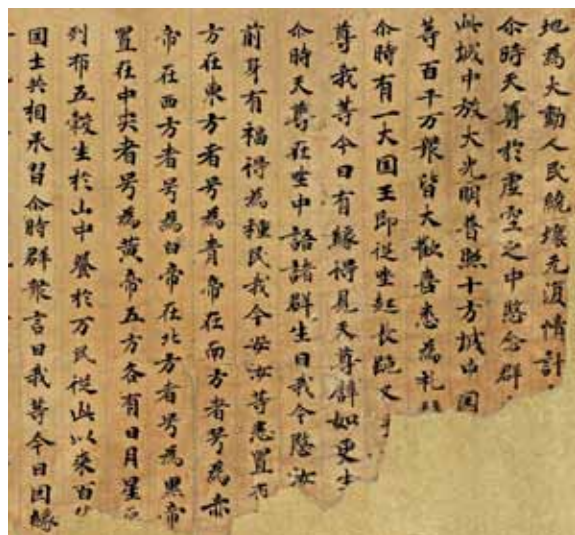 地為大動人民繞壞无復情計
尒時天尊於虛空之中愍念群
此城中放大光明普照十方城中国
等百千万眾皆大歡喜悉為礼
尒時有一大国王即從坐起長跪叉
尊我等今日有緣得見天尊辟如更
尒時天尊在坐中語諸群生曰我今愍汝
前身有福得為種民我今安汝等悉置
方在東方者号為青帝在南方者号為赤
帝在西方者号為白帝在北方者号為黑帝
置在中央者号為黃帝五方各有日月星
列布五穀生於山中養於万民從此以来百
国土共相承習尒時群眾言曰我等今日因緣